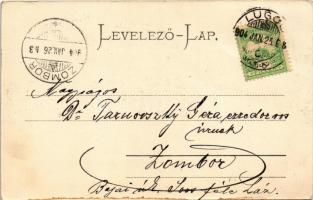 LEVELEZŐ-LAP.
LUGOS
904 JAN. 24
ZOMBOR
904 JAN. 26
Nagyságos
Dr Tarnovszky Géza ezredorvos
úrnak
Zombor
Bajai út féle ház.